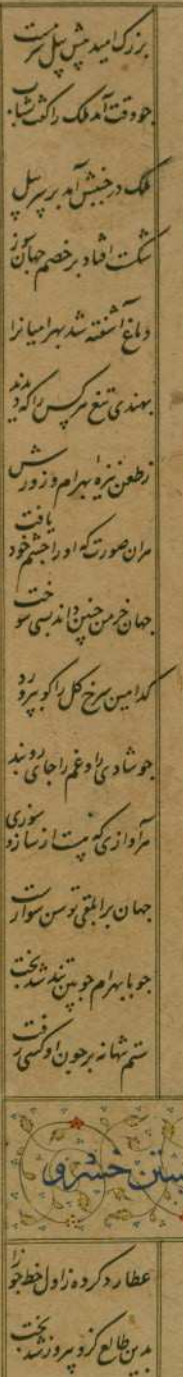 بزرگ امید پیش پیل سرمست
چو وقت آمد ملک را گفت بشتاب
ملک در جنبش آمد بر سر پیل
شکست افتاد بر خصم جهان سوز
دماغ آشفته شد بهرامیانرا
بهندی تیغ هرکس را که دیدند
ز طعن نیزه بهرام و زورش
بران صورت که او را چشم خود یافت
جهان خرمن چنین داند بسی سوخت
کدامین سرخ گل را کو بپرورد
چو شادی را و غم را جای روبند
هر آوازی که هست از ساز و سوری
جهان بر ابلقی توسن سوارست
چو با بهرام چوبین تند شد بخت
ستم تنها نه بر چون او کسی رفت
نشستن خسرو
عطارد کرده ز اول خط جوزا
بدین طالع کزو پیروز شد بخت